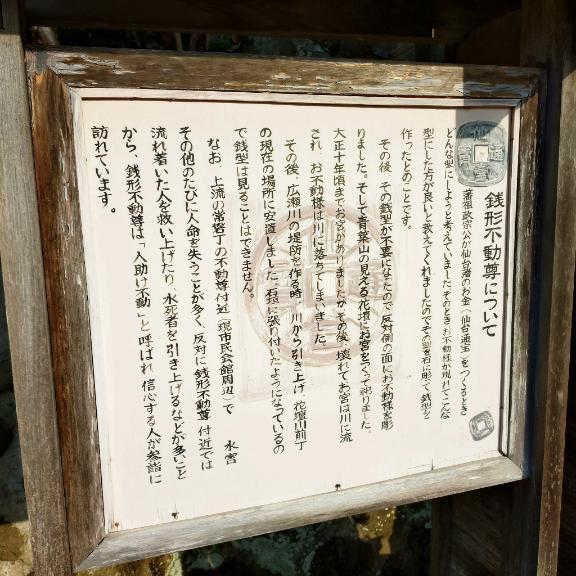 銭形不動尊について
藩祖政宗公が仙台藩のお金(仙台通宝)をつくるとき
どんな型にしようと考えていました。そのときお不動様が現れてこんな
型にした方が良いと教えてくれましたのでその型を石に彫って銭型を
作ったとのことです。
その後 その銭型が不要になったので反対側の面にお不動様を彫
りました。そして青葉山の見える花壇にお宮をつくって祀りました。
大正十年頃までお宮がありましたがその後、壊れてお宮は川に流
され お不動様は川に落ちてしまいました。
その後、広瀬川の堤防を作る時、川から引き上げ、花壇川前丁
の現在の場所に安置しました。石垣に張り付いたようになっているの
で銭型は見ることはできません。
なお、上流の常盤丁の不動尊付近(現市民会館周辺)で 水害
その他のたびに人命を失うことが多く、反対に銭形不動尊付近では
流れ着いた人を救い上げたり、水死者を引き上げるなどが多いこと
から、銭形不動尊は「人助け不動」と呼ばれ 信心する人が参詣に
訪れています。
仙臺通寳